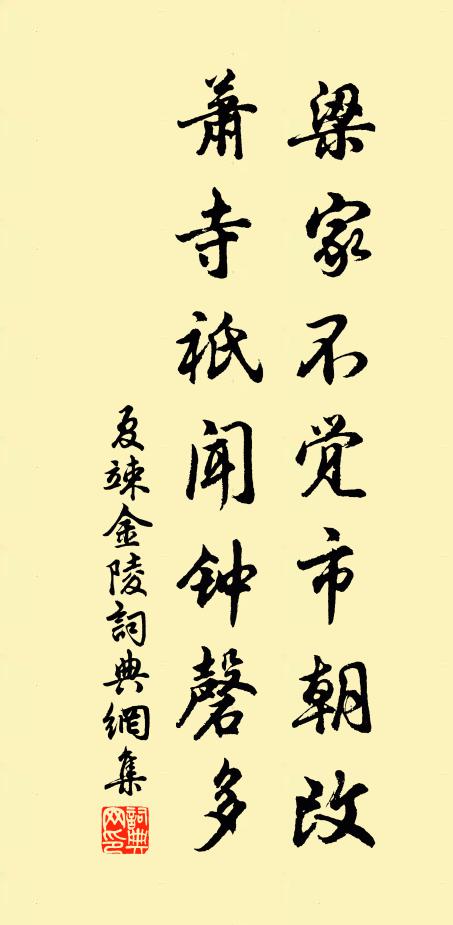 梁家不觉市朝改
萧寺祇闻钟磬多
夏竦金陵詞典網集
詞典网印